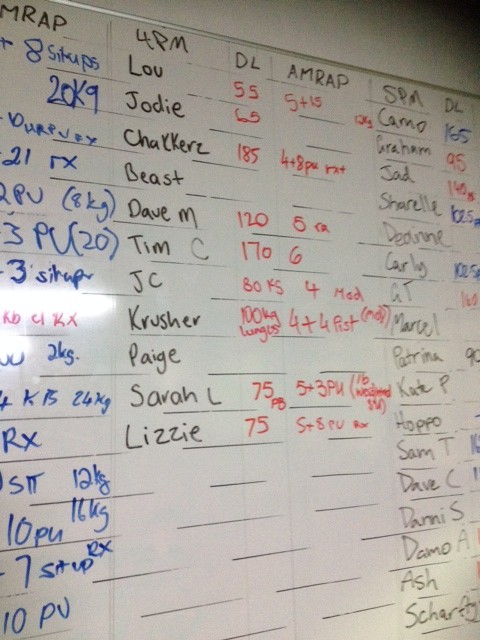 MRAP
+ 8 situps
20Kg
21 rx
2PU (8kg)
3 PU (20)
3 situps
2kg.
4 KB 24kg
RX
SIT 12kg
10pu 16kg
7 situp RX
10 PU
4PM DL AMRAP
Lou 55 5+15
Jodie 65
Chakkerz 185 4+8pu
Beast
Dave M 120 5
Tim C 170 6
JC 80 KS 4 Mod
Krusher 100kg lunges 4+4 Pist (mod)
Paige
Sarah L 75 PB 5+3PU
Lizzie 75 5+8 PU Rx
5PM DL
Camo 165
Graham 95
Jad 140
Sharelle
Deanne
Carly
GT
Marcel
Patrina 90
Kate P
Hoppo
Sam T
Dave C
Danni S
Damo A
Ash